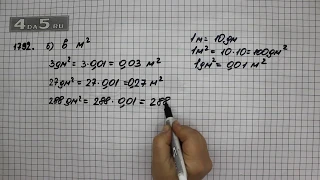 4DA5.RU
1792. б) в м²
3 дм² = 3·0,01 = 0,03 м²
27 дм² = 27·0,01 = 0,27 м²
288 дм² = 288·0,01 = 288
1 м = 10 дм
1 м² = 10·10 = 100 дм²
1 дм² = 0,01 м²